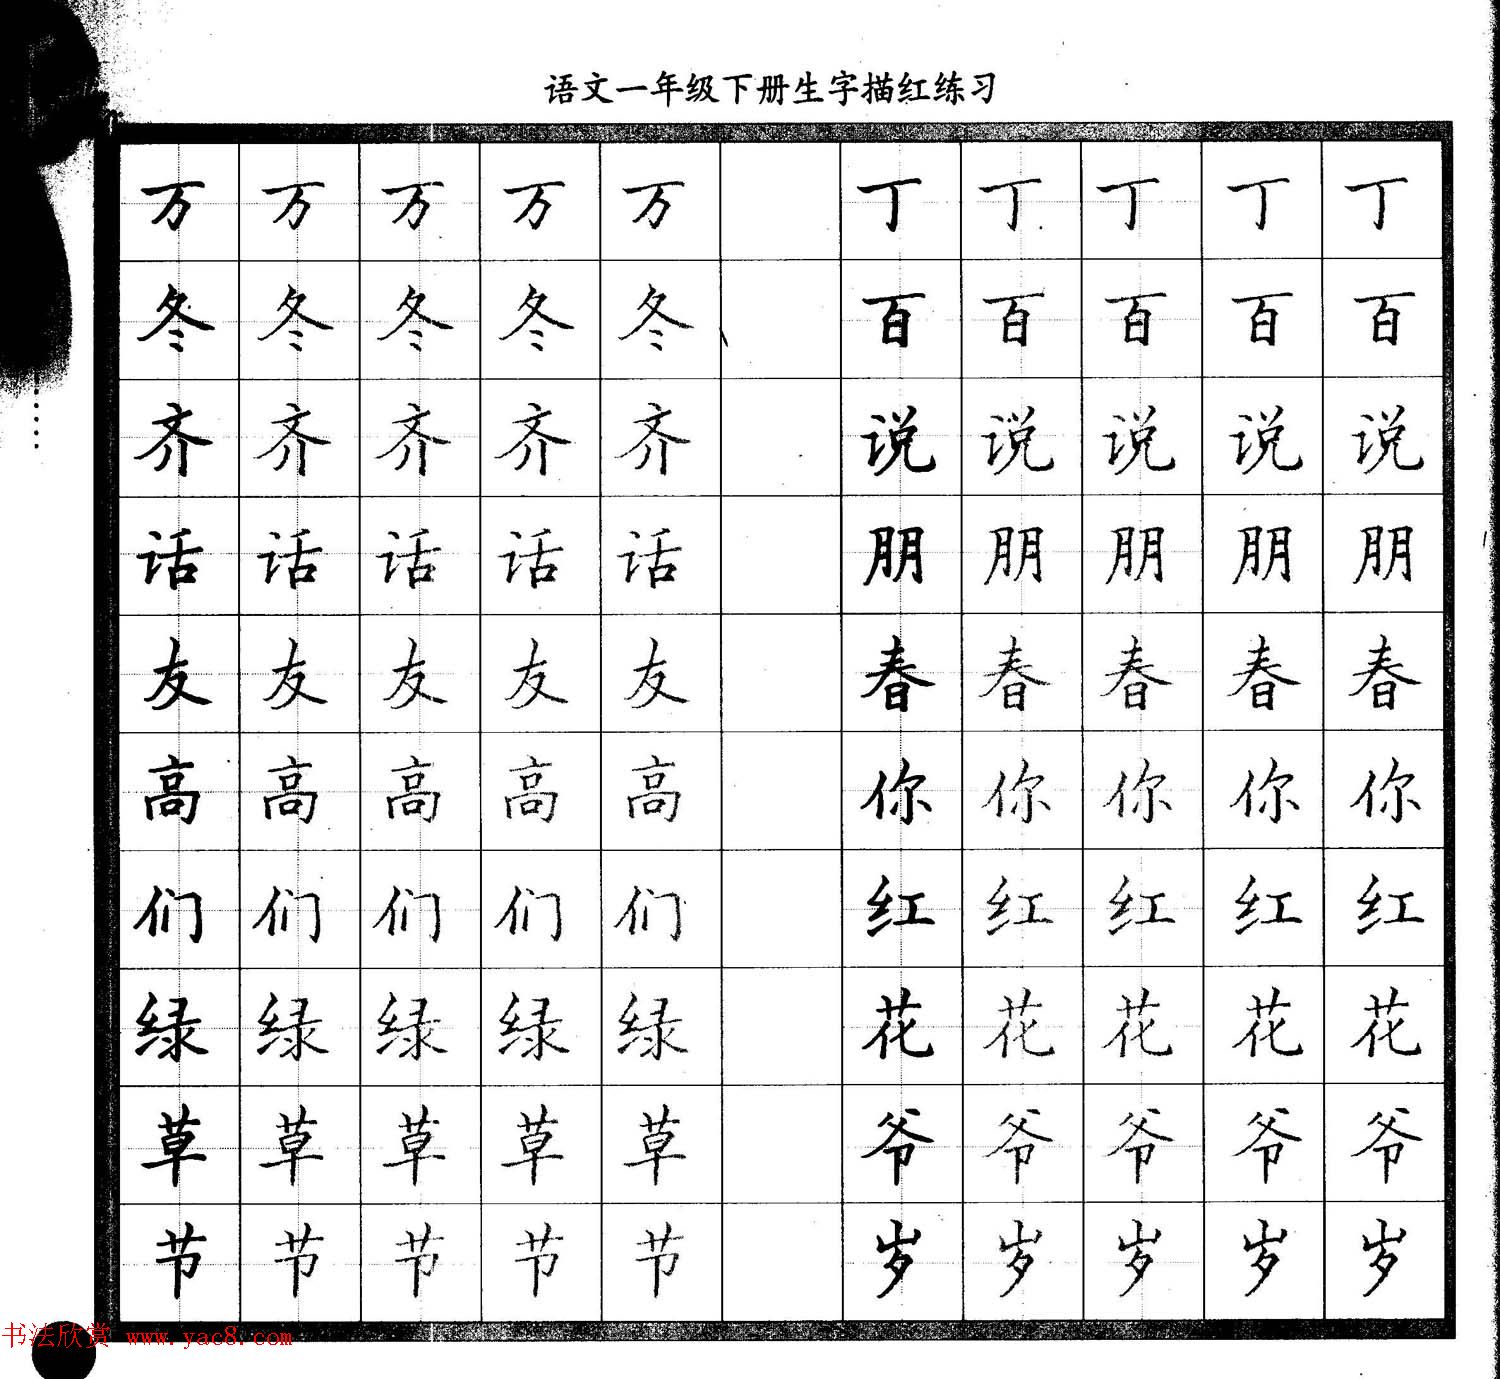 语文一年级下册生字描红练习
万 万 万 万 万 丁 丁 丁 丁 丁
冬 冬 冬 冬 冬 百 百 百 百 百
齐 齐 齐 齐 齐 说 说 说 说 说
话 话 话 话 话 朋 朋 朋 朋 朋
友 友 友 友 友 春 春 春 春 春
高 高 高 高 高 你 你 你 你 你
们 们 们 们 们 红 红 红 红 红
绿 绿 绿 绿 绿 花 花 花 花 花
草 草 草 草 草 爷 爷 爷 爷 爷
节 节 节 节 节 岁 岁 岁 岁 岁
书法欣赏 www.yac8.com